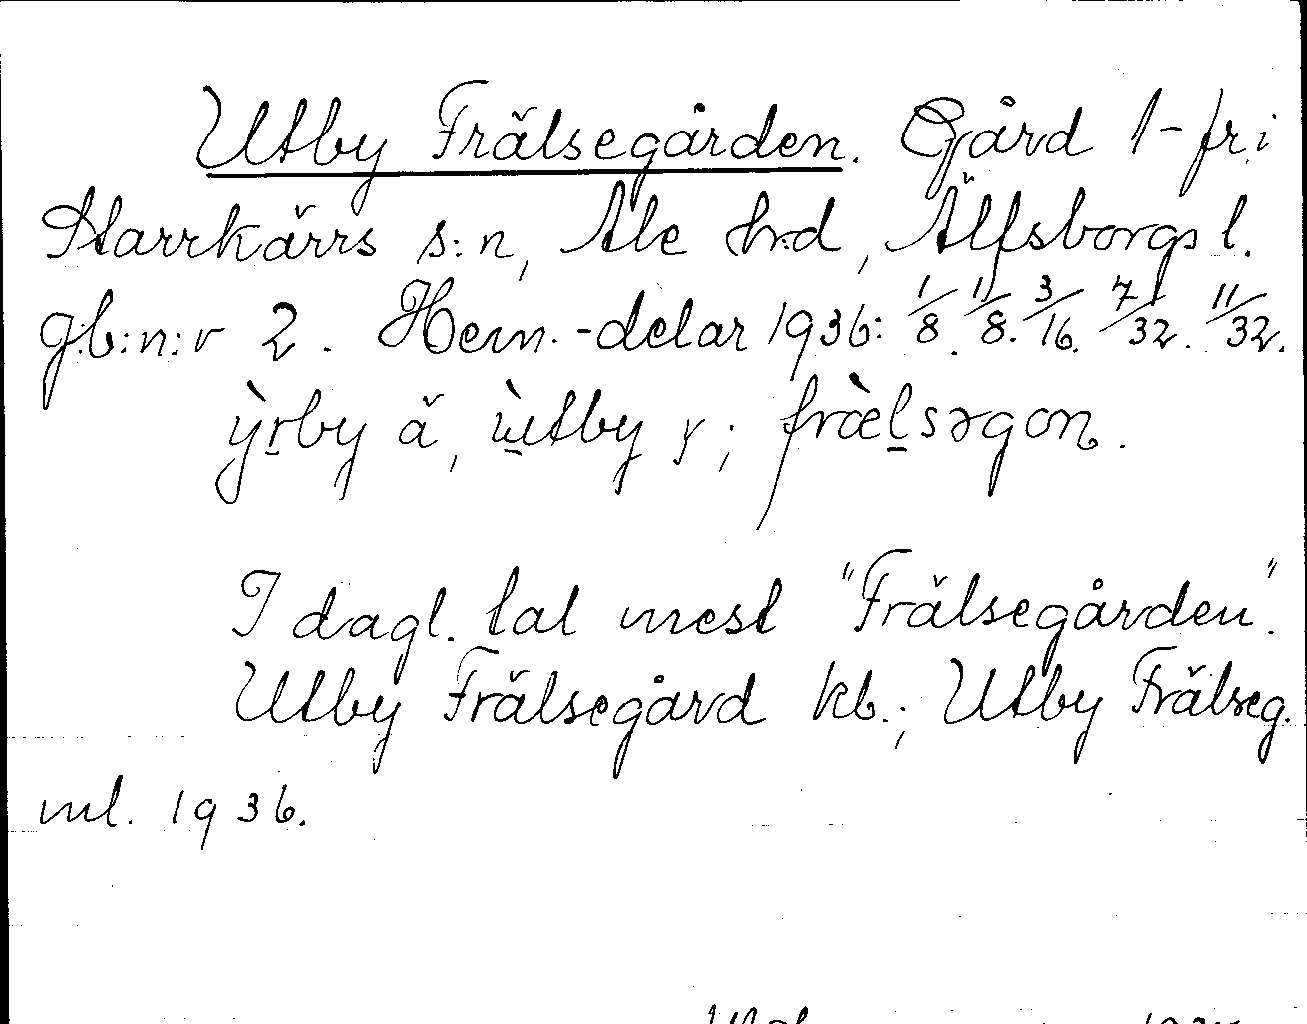 Utby Frälsegården. Gård 1-fr i
Starrkärrs s:n, Ale hrd, Älfsborgs l.
g:b:n:r 2. Hem.-delar 1936: 1/8. 11/8. 3/16. 7/32. 11/32.
ỳrby ä, ùtby y; fræ̀lsəgon.
I dagl. tal mest "Frälsegården".
Utby Frälsegård kb.; Utby Frälseg.
ml. 1936.